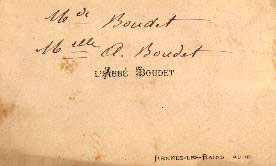 Mde Boudet
Melle A. Boudet
L'ABBÉ BOUDET
RENNES-LES-BAINS AUDE